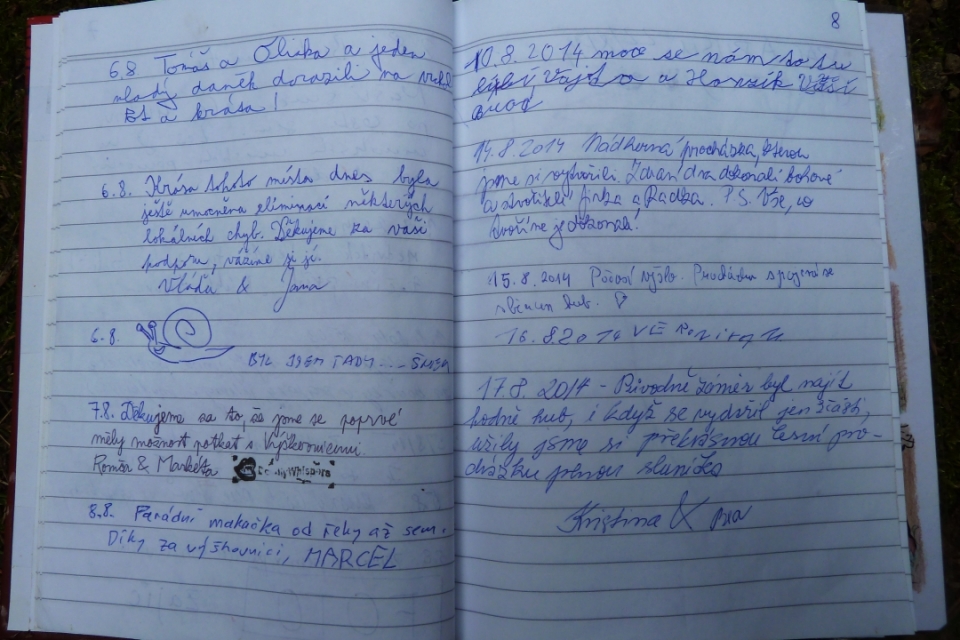 6.8 Tomáš a Eliška a jeden
mladý daněk dorazili na vrchol
BJ a krása!
6.8. Krása tohoto místa dnes byla
ještě umocněna eliminací některých
lokálních chyb. Děkujeme za vaši
podporu, vážíme si jí.
Vláďa & Jana
6.8.
BYL JSEM TADY... ŠNEK
7.8. Děkujeme za to, že jsme se poprvé
měly možnost potkat s Výškovnicemi.
Romča & Markéta
8.8. Parádní makačka od řeky až sem.
Díky za výškovnici, MARCEL
8
10.8.2014 moc se nám to tu
líbí Vajda a Honzík
14.8.2014 Nádherná procházka, kterou
jsme si vytvořili. Zdraví dva dokonalí bohové
a stvořitelé Jirka a Radka. P.S. Vše, co
tvoříme je dokonalé!
15.8.2014 Počasí výšlo. Procházka spojená se
sběrem hub.
16.8.2014 VŠE
17.8. 2014 - Původně záměr byl najít
hodně hub, i když se vydařil jen z části,
užily jsme si překrásnou lesní pro-
cházku plnou sluníčka
Kristina &